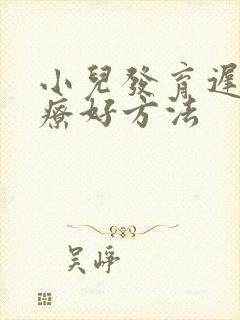 小兒發育遲
療好方法
吳崢